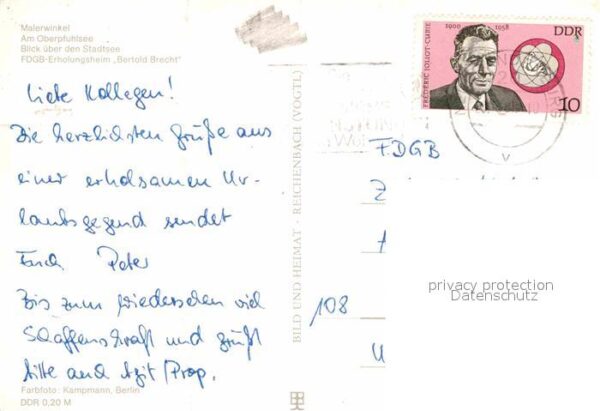 Malerwinkel
Am Oberpfuhlsee
Blick über den Stadtsee
FDGB-Erholungsheim „Bertold Brecht"
Liebe Kollegen!
Die herzlichsten Grüße aus
einer erholsamen Ur-
laubsgegend sendet
Euch Peter
Bis zum Wiedersehen viel
Schaffenskraft und grüßt
bitte auch Agit/Prop.
Farbfoto: Kampmann, Berlin
DDR 0,20 M
BILD UND HEIMAT · REICHENBACH (VOGTL)
1900 1958
DDR
FRÉDÉRIC JOLIOT-CURIE
10
FDGB
108
privacy protection
Datenschutz